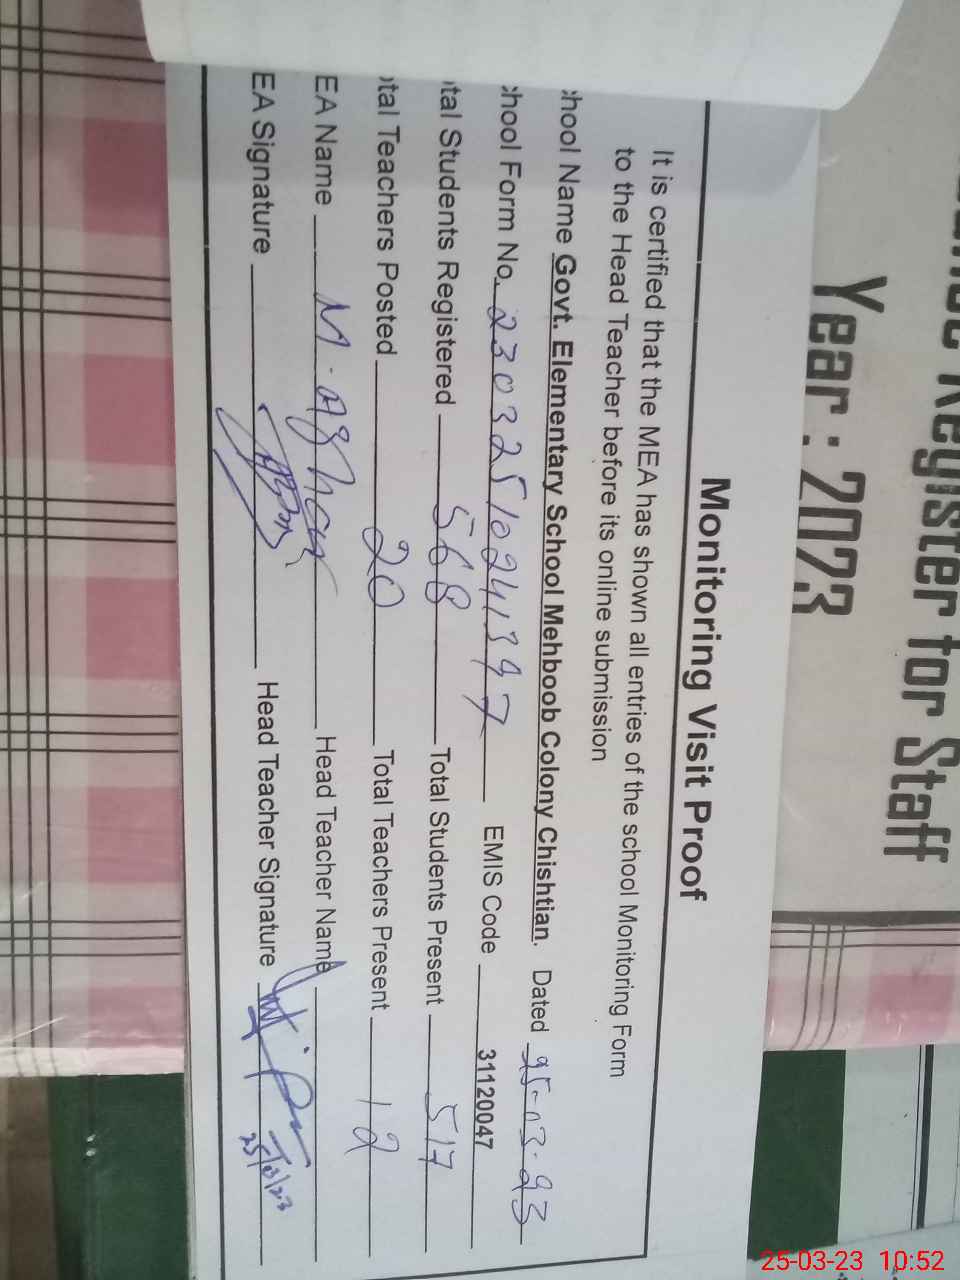 Register for Staff
Year : 2023
Monitoring Visit Proof
It is certified that the MEA has shown all entries of the school Monitoring Form
to the Head Teacher before its online submission
hool Name Govt. Elementary School Mehboob Colony Chishtian. Dated 25-03-23
hool Form No. EMIS Code 31120047
tal Students Registered 568 Total Students Present 517
tal Teachers Posted 20 Total Teachers Present 12
EA Name M. Azhar Head Teacher Name
EA Signature Head Teacher Signature
25/3/23
25-03-23 10:52